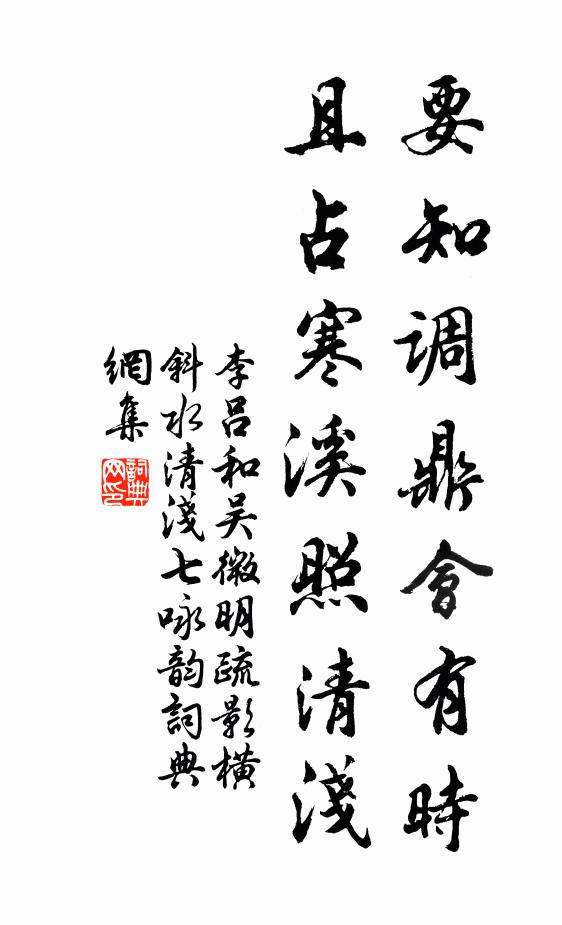 要知調鼎會有時
且占寒溪照清淺
李呂和吴微明疏影橫
斜水清淺七咏韵詞典
網集
詞典
网印